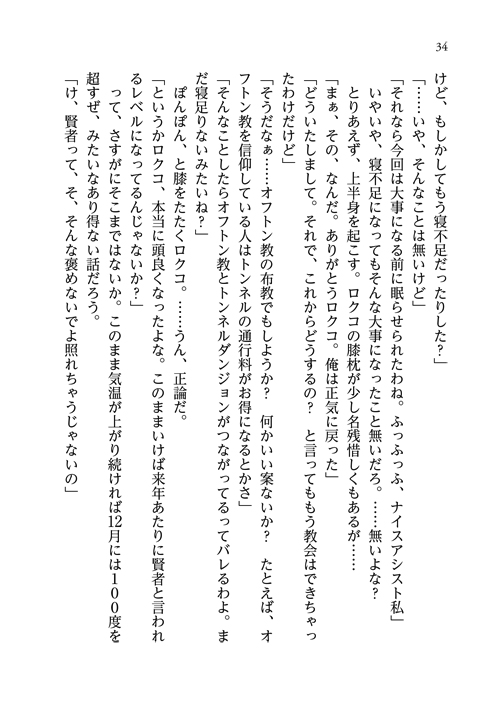 34
けど、もしかしてもう寝不足だったりした？」
「……いや、そんなことは無いけど」
「それなら今回は大事になる前に眠らせられたわね。ふっふっふ、ナイスアシスト私」
いやいや、寝不足になってもそんな大事になったこと無いだろ。……無いよな？
とりあえず、上半身を起こす。ロクコの膝枕が少し名残惜しくもあるが……
「まぁ、その、なんだ。ありがとうロクコ。俺は正気に戻った」
「どういたしまして。それで、これからどうするの？　と言ってももう教会はできちゃっ
たわけだけど」
「そうだなぁ……オフトン教の布教でもしようか？　何かいい案ないか？　たとえば、オ
フトン教を信仰している人はトンネルの通行料がお得になるとかさ」
「そんなことしたらオフトン教とトンネルダンジョンがつながってるってバレるわよ。ま
だ寝足りないみたいね？」
ぽんぽん、と膝をたたくロクコ。……うん、正論だ。
「というかロクコ、本当に頭良くなったよな。このままいけば来年あたりに賢者と言われ
るレベルになってるんじゃないか？」
って、さすがにそこまではないか。このまま気温が上がり続ければ12月には１００度を
超すぜ、みたいなあり得ない話だろう。
「け、賢者って、そ、そんな褒めないでよ照れちゃうじゃないの」